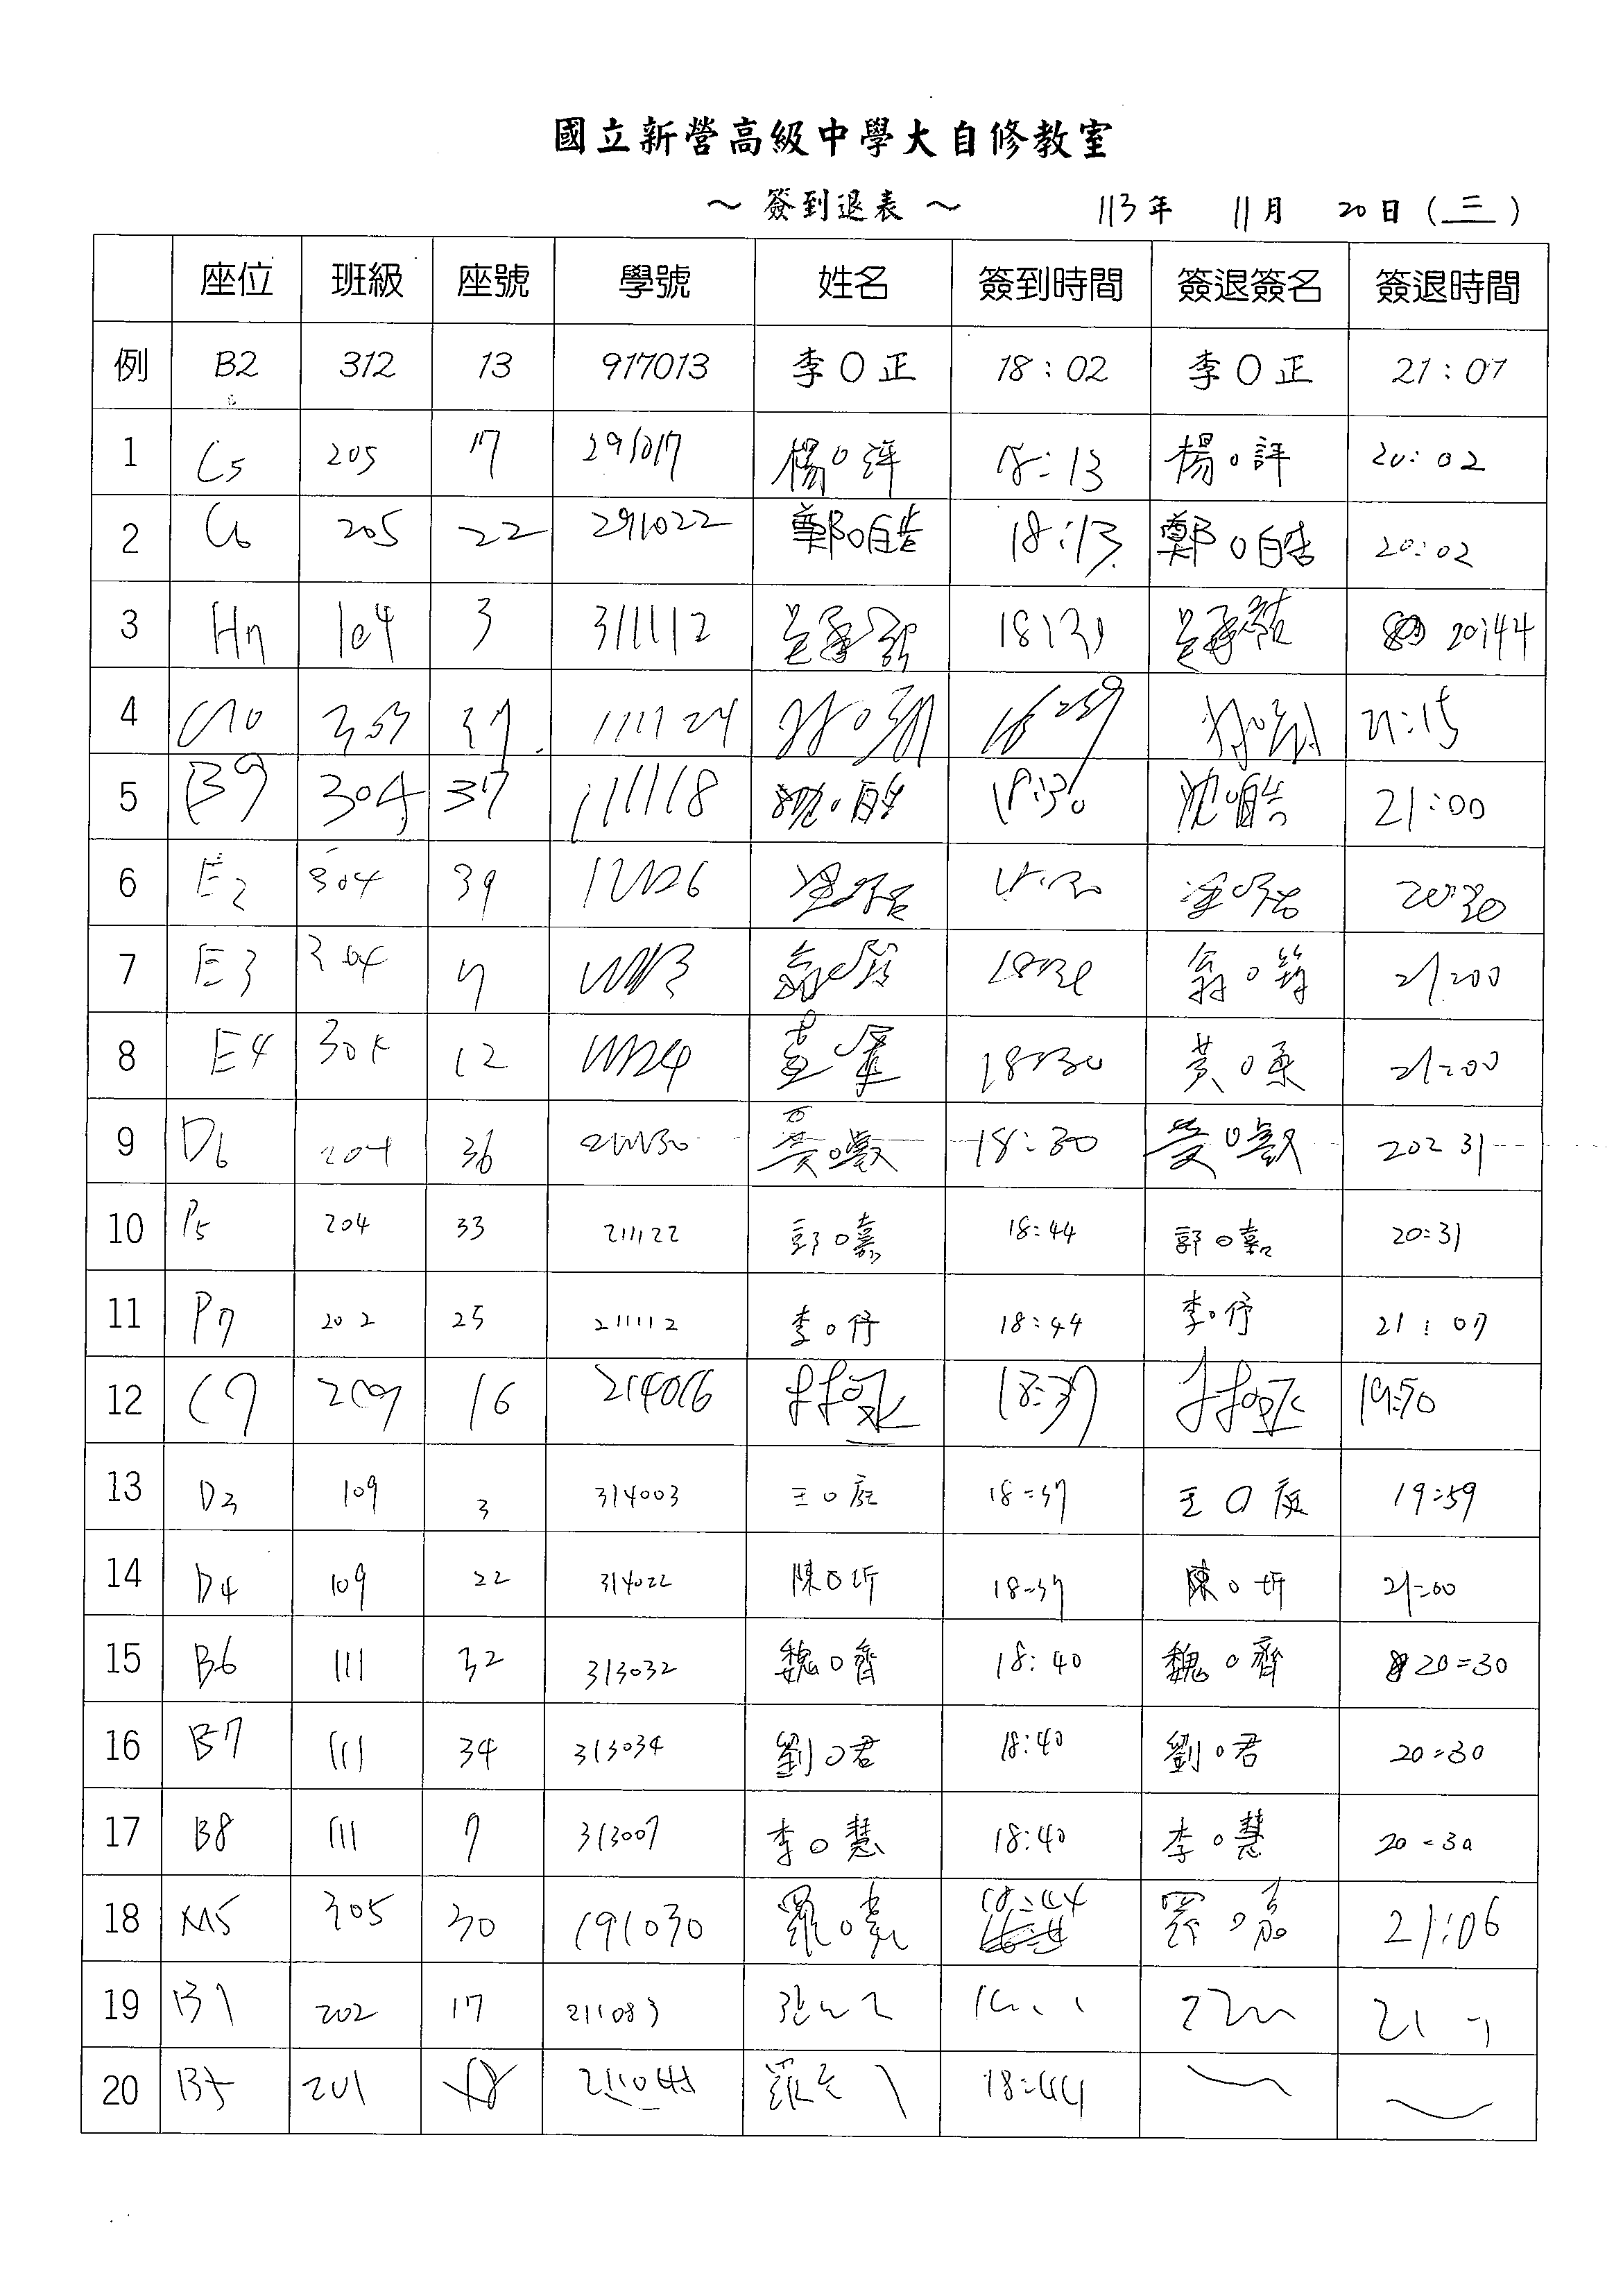 國立新營高級中學大自修教室
～ 簽到退表 ～ 113年 11月 20日(三)
座位 班級 座號 學號 姓名 簽到時間 簽退簽名 簽退時間
例 B2 312 13 917013 李O正 18:02 李O正 21:07
1 C5 205 17 291017 楊O評 18:13 楊O評 20:02
2 C6 205 22 291022 鄭O皓 18:13 鄭O皓 20:02
3 H7 104 3 311112 20:44
4 C10 353 37 111124 21:15
5 B9 304 37 111118 沈O皓 18:30 沈O皓 21:00
6 E2 304 39 20:30
7 E3 304 7 翁O筠 21:00
8 E4 304 12 18:30 黃O柔 21:00
9 D6 204 36 18:30 20:31
10 P5 204 33 211122 郭O嘉 18:44 郭O嘉 20:31
11 P7 202 25 211112 李O伃 18:44 李O伃 21:07
12 C7 209 16 214016 林O丞 18:37 林O丞 19:50
13 D3 109 3 314003 王O庭 18:37 王O庭 19:59
14 D4 109 22 314022 陳O圻 18:37 陳O圻 21:00
15 B6 111 32 313032 魏O齊 18:40 魏O齊 20:30
16 B7 111 34 313034 劉O君 18:40 劉O君 20:30
17 B8 111 7 313007 李O慧 18:40 李O慧 20:30
18 M5 305 30 191030 羅O嘉 18:44 羅O嘉 21:06
19 B1 202 17 211083 21
20 B5 201 18 羅 18:44